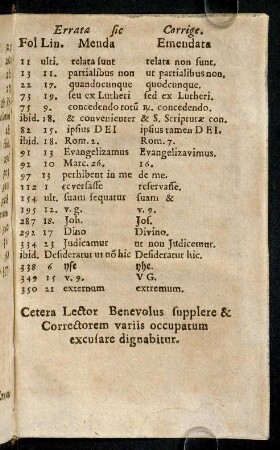 Errata sic Corrige.
Fol Lin. Menda Emendata
11 ulti. relata sunt relata non sunt.
13 11. partialibus non ut partialibus non.
22 17. quandocunque quodcunque.
73 19. seu ex Lutheri sed ex Lutheri.
75 9. concedendo totũ ꝶ. concedendo.
ibid. 18. & convenienter & S. Scripturæ con.
82 15. ipsius DEI ipsius tamen DEI.
ibid. 18. Rom. 2. Rom. 7.
91 13 Evangelizamus Evangelizavimus.
92 10 Marc. 26. 16.
97 13 perhibent in me de me.
112 1 ecversasse reservasse.
154 ult. suam sequatur suam &
195 12. v. g. v. 9.
287 18. Joh. Jos.
292 17 Dino Divino.
334 23 Judicamur ut non Judicemur.
ibid. Desideratur ut nõ hic Desideratur hic.
338 6
349 15 v. 9. VG.
350 21 externum extremum.
Cetera Lector Benevolus supplere &
Correctorem variis occupatum
excusare dignabitur.